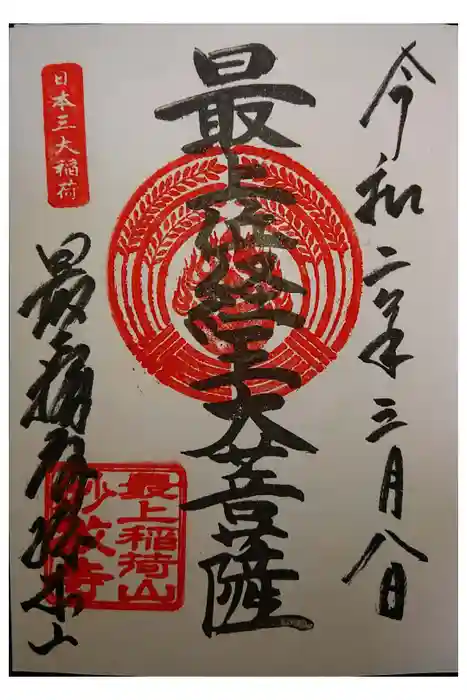 令和二年三月八日
最上位経王大菩薩
日本三大稲荷
最稲総本山
最上稲荷山
妙教寺